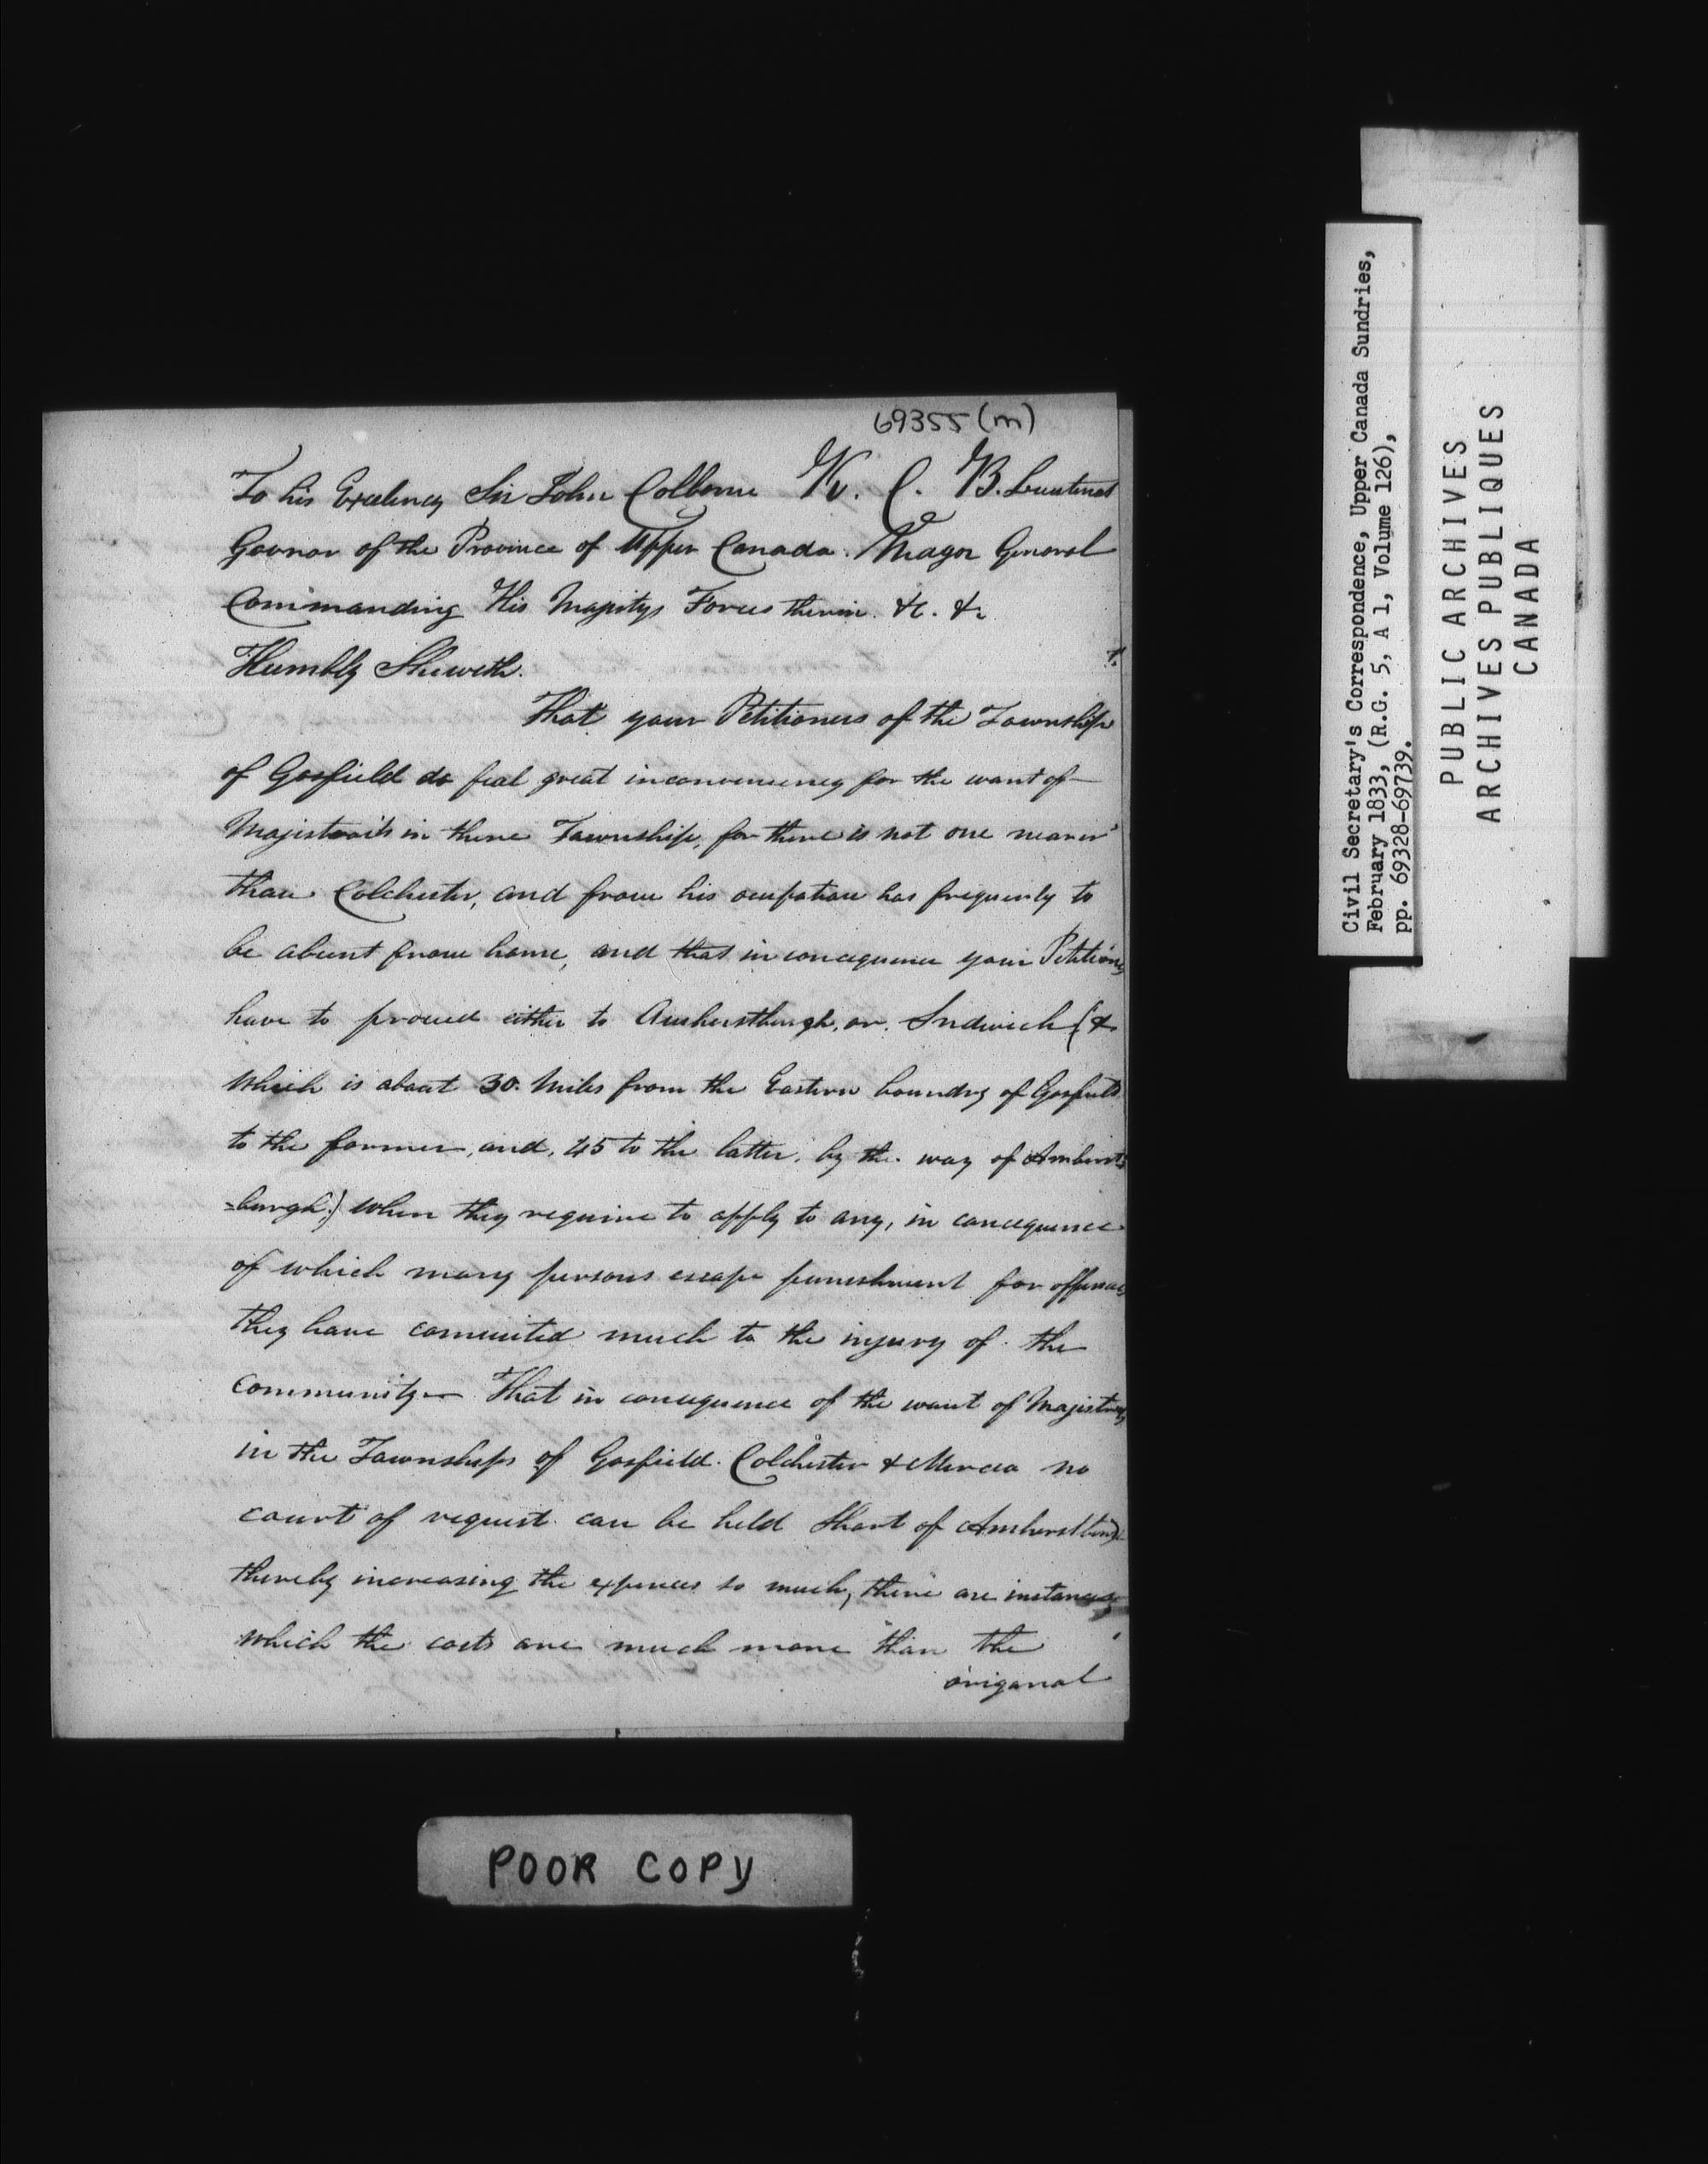 69355 (m)
To his Exelency Sir John Colborne K. C. B. Lieutinat
Govnor of the Province of Upper Canada. Magor General
Commanding His Majestys Forces therin. &c. &c
Humbly Sheweth.
That your Petitioners of the Township
of Gosfield do feal great inconveniency for the want of
Majistraits in there Township, for there is not one nearer
than Colchester, and from his ocupation has frequently to
be absent from home, and that in concequence your Petitioners
have to proceed either to Amherstburgh, or. Sndwich (&
which is about 30. Miles from the Eastern boundry of Gosfield
to the former, and, 45 to the latter. by the. way of Amherst
=burgh.) when they require to apply to any, in concequence
of which many persons escape punishment for offences
they have commited much to the injury of the
community— That in concequence of the want of Majistrates
in the Townships of Gosfield. Colchester & Mercea no
court of request can be held Short of Amherstburgh
thereby increasing the expences so much, there are instances
which the costs are much more than the
origanal
POOR COPY
Civil Secretary's Correspondence, Upper Canada Sundries,
February 1833, (R.G. 5, A 1, Volume 126),
pp. 69328-69739.
PUBLIC ARCHIVES
ARCHIVES PUBLIQUES
CANADA